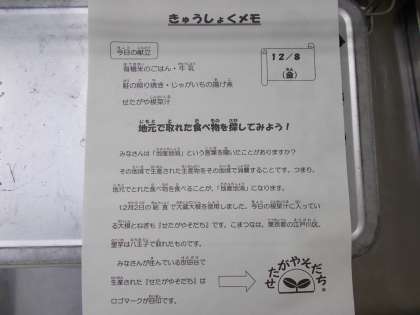 きゅうしょくメモ
今日の献立
12/8
(金)
有機米のごはん・牛乳
鮭の照り焼き・じゃがいもの揚げ煮
せたがや根菜汁
地元で取れた食べ物を探してみよう!
みなさんは「地産地消」という言葉を聞いたことがありますか?
その地域で生産された生産物をその地域で消費することです。つまり、
地元でとれた食べ物を食べることが、「地産地消」になります。
12月2日の給食で大蔵大根を使用しました。今日の根菜汁に入ってい
る大根とねぎも『せたがやそだち』です。こまつなは、東京都の江戸川区、
里芋は八王子で取れたものです。
みなさんが住んでいる世田谷で
生産された『せたがやそだち』は
ロゴマークが目印です。
せたがやそだち